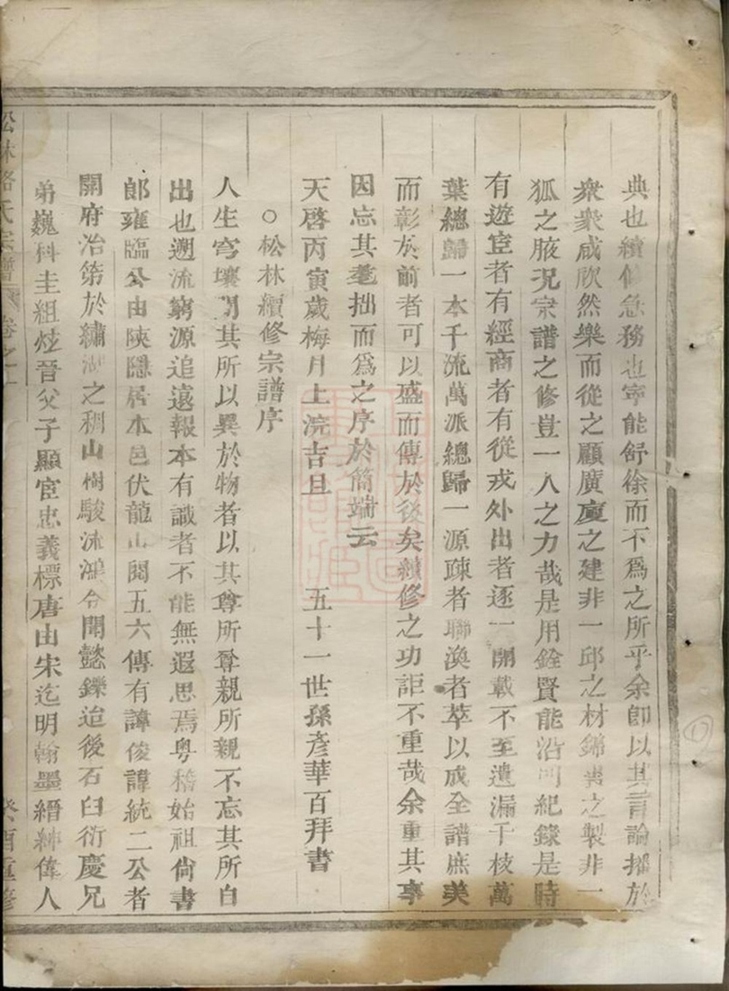 典也續修急務也寧能舒徐而不爲之所乎余卽以其言論播於
衆衆咸欣然樂而從之顧廣廈之建非一邱之材錦裘之製非一
狐之腋況宗譜之修豈一人之力哉是用銓賢能沿門紀錄是時
有遊宦者有經商者有從戎外出者逐一開載不至遺漏千枝萬
葉總歸一本千流萬派總歸一源疎者聯渙者萃以成全譜庶美
而彰於前者可以盛而傳於後矣續修之功詎不重哉余重其事
因忘其耄拙而爲之序於簡端云
天啓丙寅歲梅月上浣吉旦 五十一世孫彥華百拜書
○松林續修宗譜序
人生穹壤間其所以異於物者以其尊所尊親所親不忘其所自
出也遡流窮源追遠報本有識者不能無遐思焉粵稽始祖尙書
郎雍臨公由陝隱居本邑伏龍山閱五六傳有諱俊諱統二公者
開府治第於繡湖之稠山樹駿流鴻令聞懿鑠迨後石臼衍慶兄
弟巍科圭組炫晉父子顯宦忠義標唐由宋迄明翰墨縉紳偉人
松林駱氏宗譜 卷之一 癸酉重修